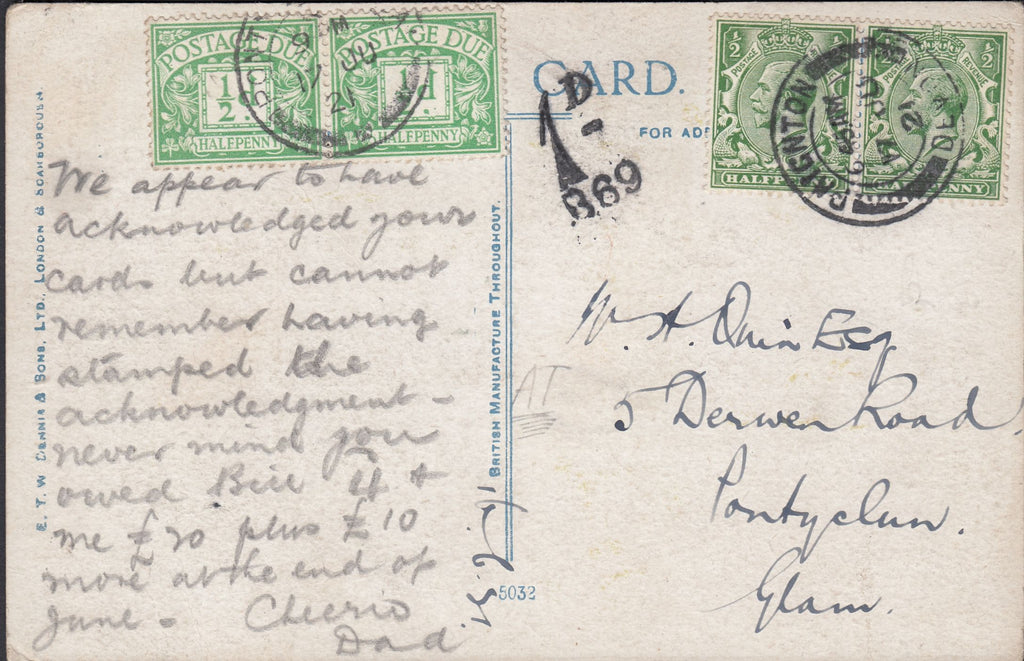 POSTAGE DUE
1/2 D
HALFPENNY
POSTAGE DUE
HALFPENNY
JU
21
CARD.
FOR ADD
1 D
-
B69
1/2
POSTAGE
HALFPENNY
1/2
POSTAGE REVENUE
PENNY
PAIGNTON
DEVON
21
We appear to have
acknowledged yours
cards but cannot
remember having
stamped the
acknowledgment -
never mind you
owed Bill £4 &
me £20 plus £10
more at the end of
June - Cheerio
Dad
E. T. W. DENNIS & SONS, LTD., LONDON & SCARBOROUGH
BRITISH MANUFACTURE THROUGHOUT.
5032
AT
W. H. Quin Esq
5 Derwen Road,
Pontyclun.
Glam.